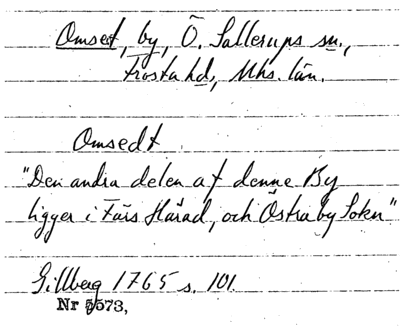 Omsedt, by, Ö. Sallerups sn.,
Frosta hd., Mhs. län.
Omsedt
"Den andra delen af denne By
ligger i Färs Härad, och Östraby Sokn"
Gillberg 1765 s. 101.
Nr 5573,